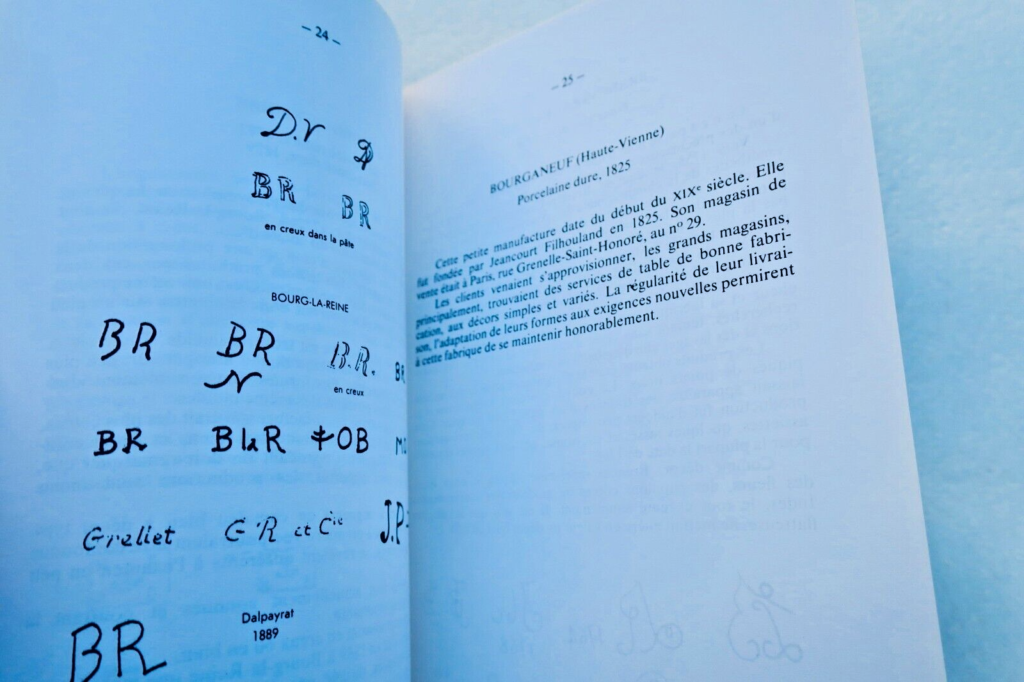 — 24 —
D.V
BR BR
en creux dans la pâte
BOURG-LA-REINE
BR BR B.R. BR
N
en creux
BR BlaR OB
Greliet G R et Cie J.P
Dalpayrat
1889
BR
— 25 —
BOURGANEUF (Haute-Vienne)
Porcelaine dure, 1825
Cette petite manufacture date du début du XIXe siècle. Elle
fut fondée par Jeancourt Filhouland en 1825. Son magasin de
vente était à Paris, rue Grenelle-Saint-Honoré, au n° 29.
Les clients venaient s'approvisionner, les grands magasins,
principalement, trouvaient des services de table de bonne fabri-
cation, aux décors simples et variés. La régularité de leur livrai-
son, l'adaptation de leurs formes aux exigences nouvelles permirent
à cette fabrique de se maintenir honorablement.